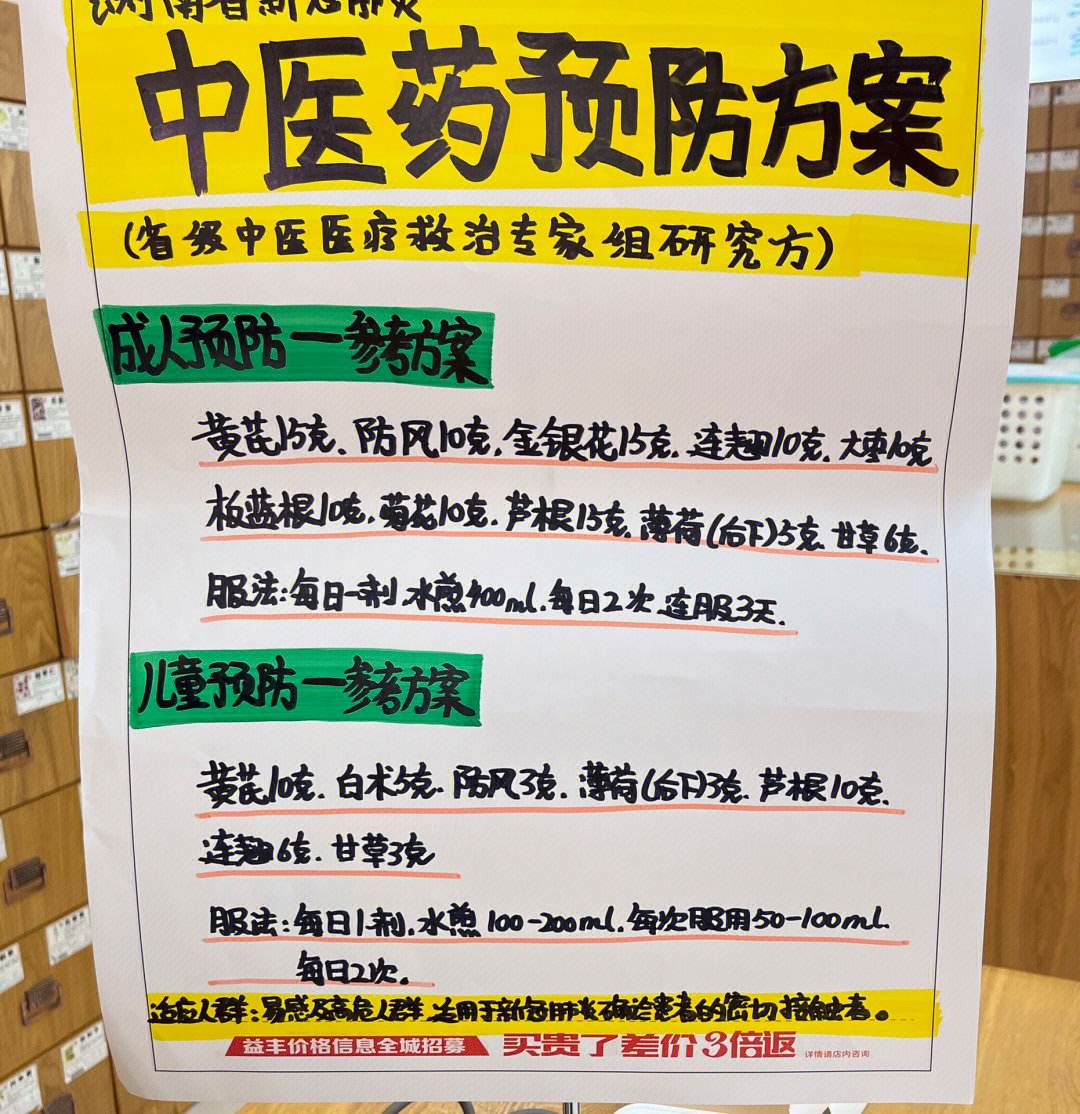 湖南省新冠肺炎
中医药预防方案
(省级中医医疗救治专家组研究方)
成人预防一参考方案
黄芪15克、防风10克,金银花15克,连翘10克,大枣10克
板蓝根10克,菊花10克,芦根15克,薄荷(后下)5克,甘草6克.
服法:每日一剂,水煎400ml.每日2次,连服3天.
儿童预防一参考方案
黄芪10克.白术5克.防风3克.薄荷(后下)3克.芦根10克.
连翘6克.甘草3克
服法:每日1剂,水煎100-200ml.每次服用50-100ml.
每日2次。
适应人群:易感及高危人群,适用于新冠肺炎确诊患者的密切接触者。
益丰价格信息全城招募 买贵了差价3倍返 详情请店内咨询